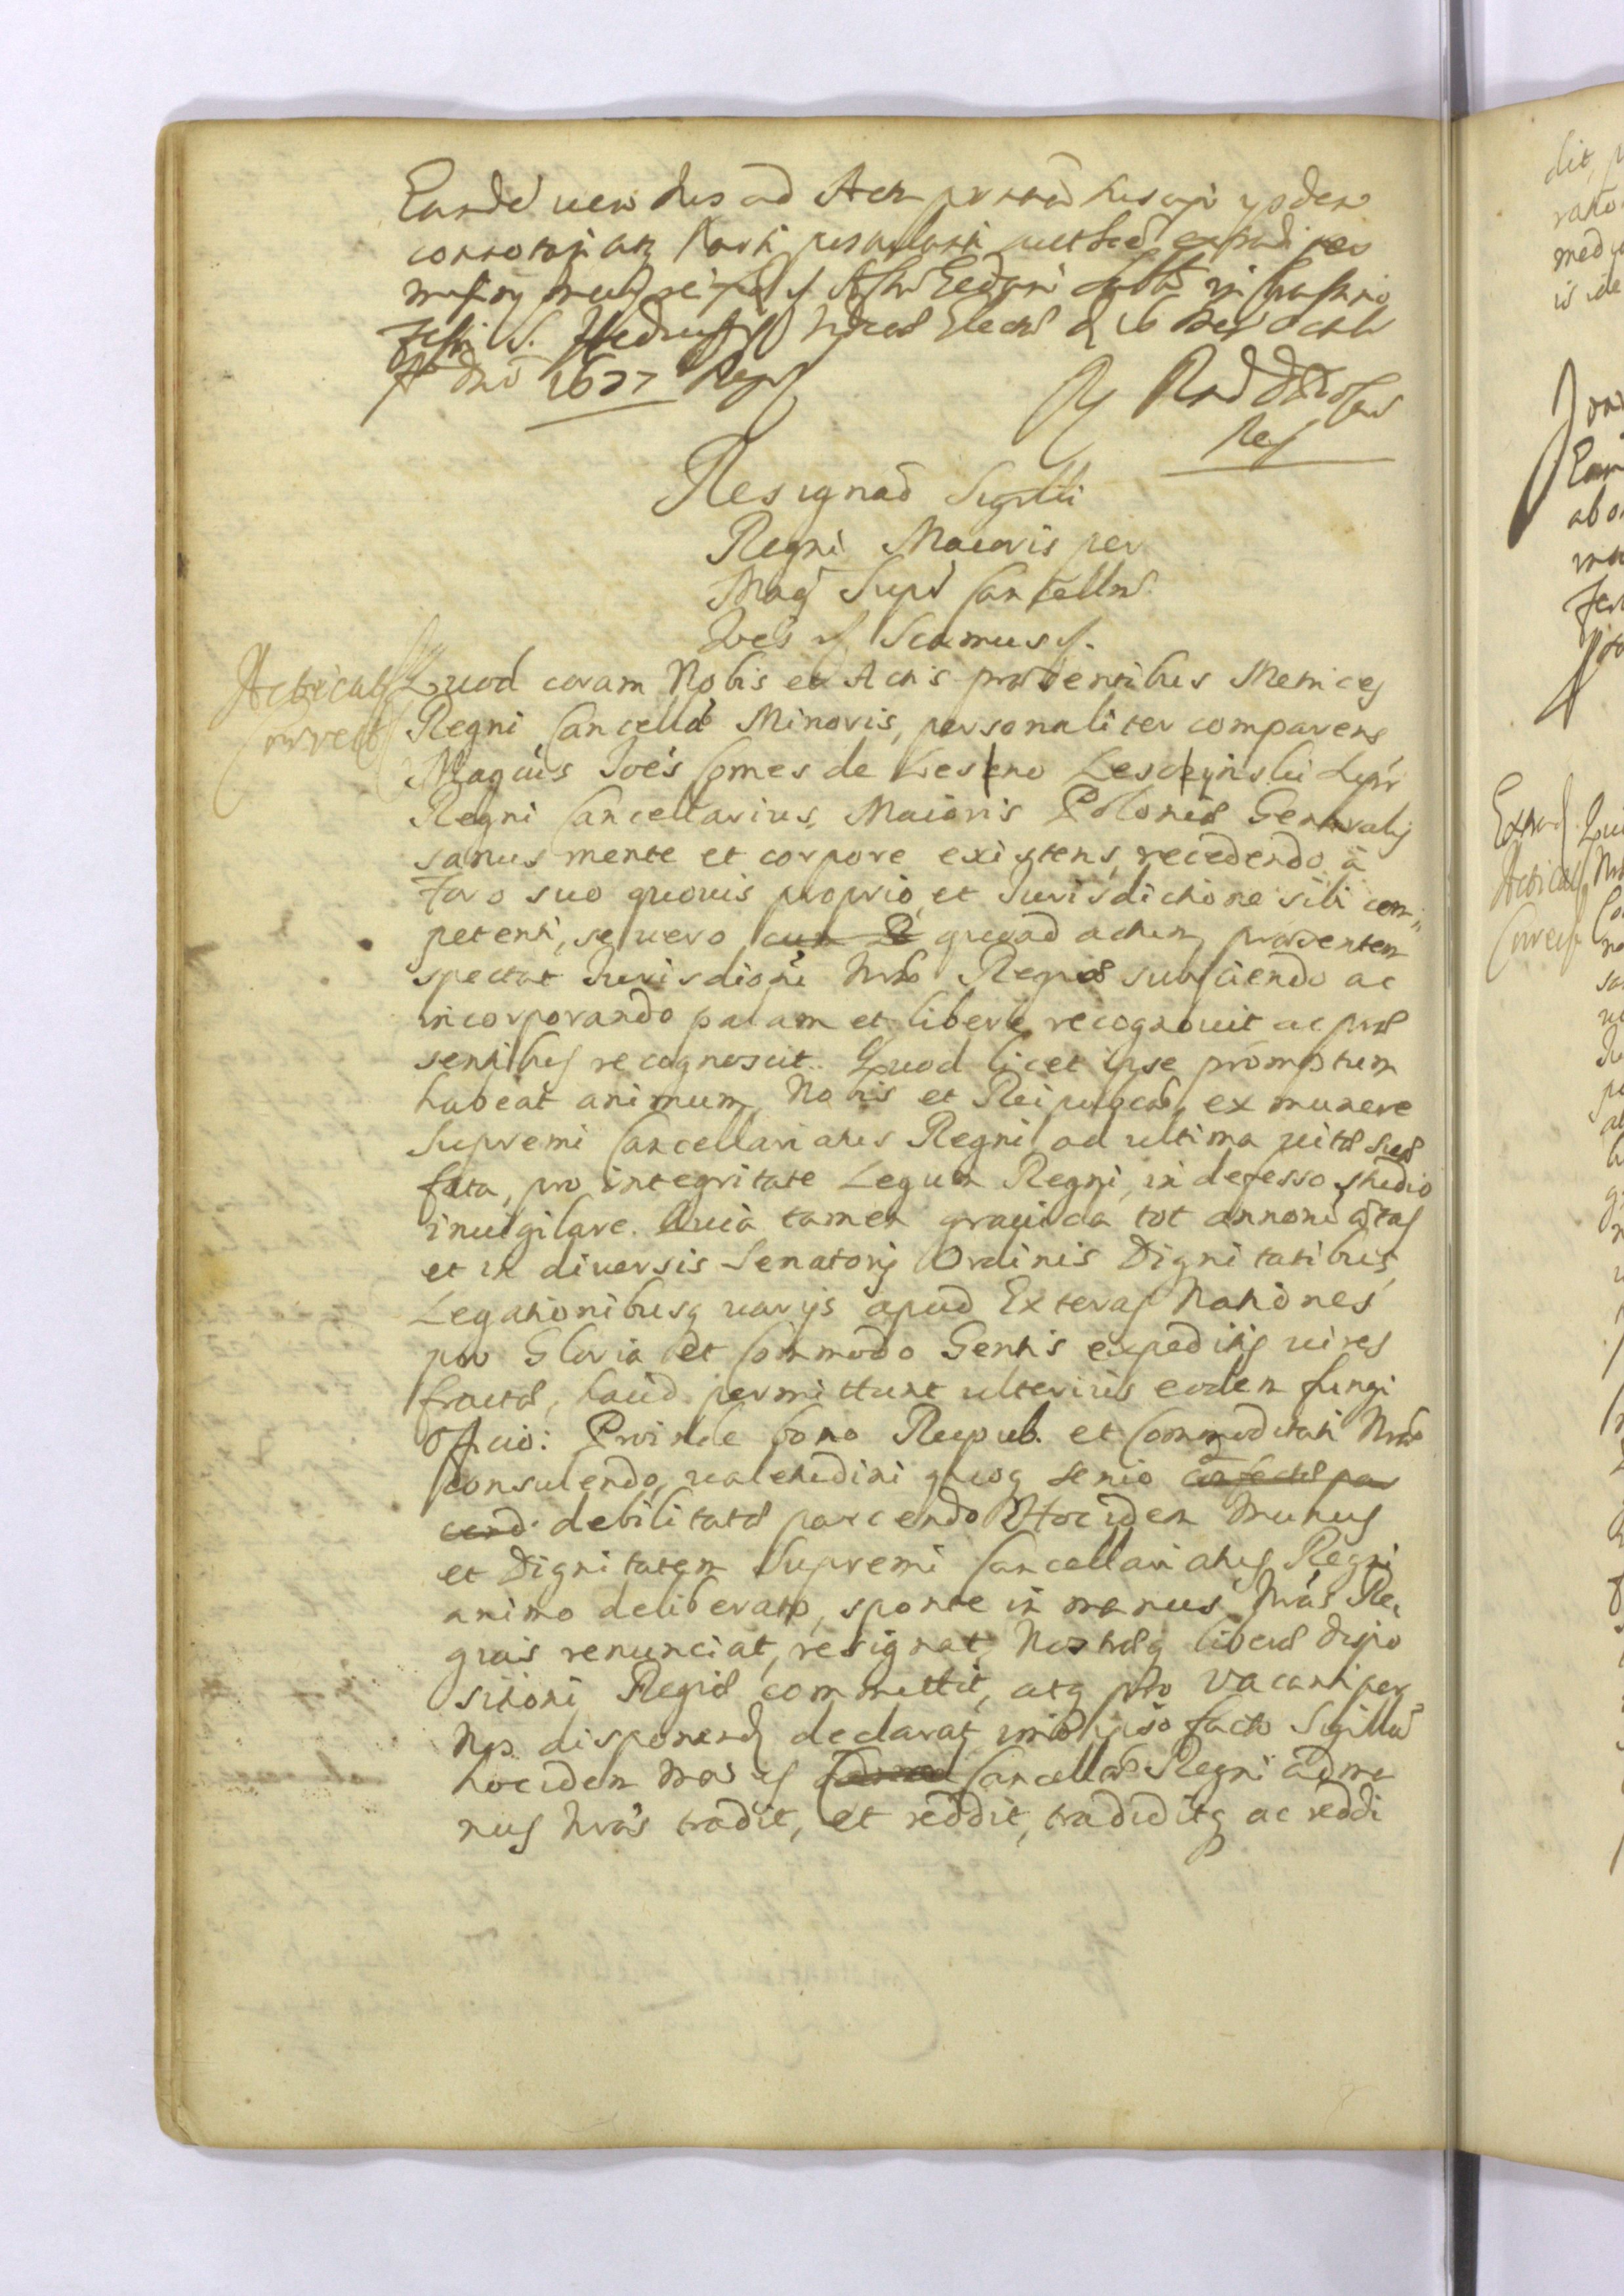 ad Acta
S.
1677
Resignaō Sigilli
Regni Maioris per
Mag Supr Cancellm
Joēs Scamus
Acticat
Correct
Quod coram Nobis et Actis praesentibus Metrices
Regni Cancellae Minoris, personaliter comparens
Magcus Joēs Comes de Leszno Lesczynski Supr
Regni Cancellarius, Maioris Poloniae Generalis
sanus mente et corpore existens, recedendo à
Foro suo quovis proprio, et Jurisdictione sibi com
petenti, se vero cum R quoad actum praesentem
spectat Jurisdioni Nrae Regiae subiiciendo ac
incorporando palam et libere recognovit ac prae
sentibus recognoscit. Quod licet ipse promptum
habeat animum, Nobis et Reipublcae, ex munere
Supremi Cancellariatus Regni, ad ultima vitae suae
fata, pro integritate Legum Regni, indefesso studio
invigilare. Quia tamen gravida tot annorū aetas
et in diversis Senatorij Ordinis Dignitatibus,
Legationibusq varijs apud Exteras Nationes
pro Gloria et Commodo Gentis expeditis vires
fractae, haud permittunt ulterius eodem fungi
Officio: Proinde bono Reipub. et Commoditati Nrae
consulendo, valetudini quoq senio confectae par
cend debilitatae parcendo Hocidem Munus
et Dignitatem Supremi Cancellariatus Regni
animo deliberato, sponte in manus Nrās Re
gias renunciat, resignat, Nostraeq liberae dispo
sitioni Regiae committit, atq pro vacanti per
Nos disponend declarat, imo ipso facto Sigillū
hocidem Cancellae Regni ad ma
nus Nrās tradit, et reddit, tradiditq ac reddi